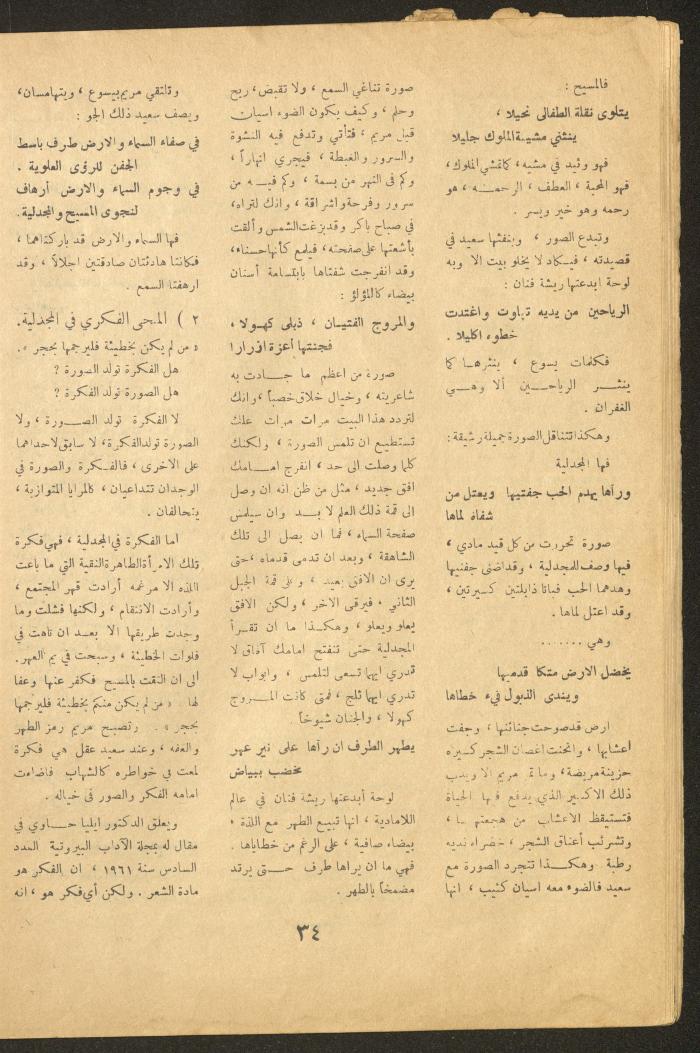 فالمسيح :
يتلوى نقلة الطفالى نحيلا ،
ينثني مشية الملوك جليلا
فهو وئيد في مشيه ، كاتمشي الملوك،
فهو المحبة ، العطف ، الرحمـــه ، هو
رحمه وهو خير ويسر .
وتبدع الصور ، وبنفثها سعيد في
قصيدته ، فيـكاد لا يخلو بيت الا وبه
لوحة ابدعتها ريشة فنان :
الرياحين من يديه تهاوت واغتدت
خطوه اكليلا .
فكلمات يسوع ، ينثرهـا كما
ينثـــر الرياحـــين ألا وهـــي
الغفران .
وهكذا تتناقل الصورة جميلة رشيقة :
فها المجدلية
ورآها يهدم الحب جفنيها ويعتل من
شفاه لماها
صورة تحررت من كل قيد مادي ،
فيها وصف للمجدلية ، وقد اضنى جفنيها
وهدهما الحب فباتا ذابلتين كسيرتين ،
وقد اعتل لماها .
وهي .......
يخضل الارض متكا قدميها
ويندى الذبول فيء خطاها
ارض قد صوحت جنائنها ، وجفت
أعشابها ، وانحنت اغصان الشجر كسيره
حزينة مريضة، وما تمر مريم الا ويدب
ذلك الاكسير الذي يدفع فيها الحياة
فتستيقظ الاعشاب من هجعتها ،
وتشرئب أعناق الشجر ، خضراء نديه
رطبة وهكـــذا تتجرد الصورة مع
سعيد فالضوء معه اسيان كئيب ، انها
صورة تناغي السمع ، ولا تقبض، ريح
وحلم ، وكيف يكون الضوء اسيان
قبل مريم ، فتأتي وتدفع فيه النشوة
والسرور والغبطة ، فيجري انهاراً ،
وكم في النهر من بسمة ، وكم فيـــه من
سرور وفرحة واشراقة ، وانك لتراه،
في صباح باكر وقد بزغت الشمس وألقت
بأشعتها على صفحته، فيلمع كأنها حسناء،
وقد انفرجت شفتاها بابتسامة أسنان
بيضاء كاللؤلؤ :
والمروج الفتيــان ، ذبلى كهـولا ،
فجنتها أعزة ازرارا
صورة من اعظم ما جـــادت به
شاعريته ، وخيال خلاق خصباً ، وانك
لتردد هذا البيت مرات مرات علك
تستطيع ان تلمس الصورة ، ولكنك
كلما وصلت الى حد ، انفرج امـــامك
افق جديد ، مثل من ظن انه ان وصل
الى قمة ذلك العلم لا بـــد وان سيلمس
صفحة السماء ، فما ان يصل الى تلك
الشاهقة ، وبعد ان تدمى قدماه ،حتى
يرى ان الافق بعيد ، وعلى قمة الجبل
الثاني ، فيرقى الاخر ، ولكن الافق
يعلو ويعلو ، وهكـــذا ما ان تقـــرأ
المجدلية حتى تنفتح امامك آفاق لا
تدري ايها تسعى لتلمس ، وابواب لا
تدري ايها تلج ، فمتى كانت المـــروج
كهولا ، والجنان شيوخاً .
يطهر الطرف ان رآها على نير عهر
مخضب ببياض
لوحة أبدعتها ريشة فنان في عالم
اللامادية ، انها تبييع الطهر مع اللذة ،
بيضاء صافية ، على الرغم من خطاياها .
فهي ما ان يراها طرف حـــتى يرتد
مضمخاً بالطهر .
وتلتقي مريم بيسوع ، ويتهامسان،
ويصف سعيد ذلك الجو :
في صفاء السماء والارض طرف باسط
الجفن للرؤى العلوية .
في وجوم السماء والارض أرهاف
لنجوى المسيح والمجدلية.
فها السماء والارض قد باركتاهما ،
فكانتا هادئتان صادقتين اجلالاً ، وقد
ارهفتا السمع .
٢ ) المنحى الفكري في المجدلية.
« من لم يكن بخطيئة فليرجمها بحجر » .
هل الفكرة تولد الصورة ؟
هل الصورة تولد الفكرة ؟
لا الفكرة تولد الصـــورة ، ولا
الصورة تولد الفكرة، لا سابق لاحداهما
على الاخرى ، فالفـكرة والصورة في
الوجدان تتداعيان ، كالمرايا المتوازية ،
يتحالفان .
أما الفكرة في المجدلية ، فهي فكرة
تلك الامرأة الطاهرة النقية التي ما باعت
اللذه الا مرغمه أرادت قهر المجتمع ،
وأرادت الانتقام ، ولكنها فشلت وما
وجدت طريقها الا بعـــد ان تاهت في
فلوات الخطيئة ، وسبحت في يم العهر.
الى ان التقت بالمسيح فكفر عنها وعفا
لها « من لم يكن منكم بخطيئة فليرجمها
بحجر » . وتصبح مريم رمز الطهر
والعفه ، وعند سعيد عقل هي فكرة
لمعت في خواطره كالشهاب فاضاءت
امامه الفكر والصور في خياله .
ويعلق الدكتور ايليا حـــاوي في
مقال له بمجلة الآداب البيروتية العدد
السادس سنة ١٩٦١ ، ان الفكر هو
مادة الشعر . ولكن أي فكر هو ، انه
٣٤